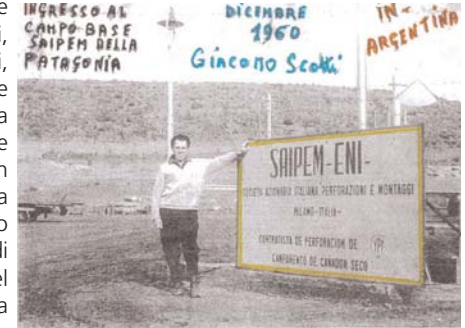 INGRESSO AL
CAMPO BASE
SAIPEM DELLA
PATAGONIA
DICEMBRE
1960
Giacomo Scotti
IN-
ARGENTINA
SAIPEM-ENI-
SOCIETA AZIONARIA ITALIANA PERFORAZIONI E MONTAGGI
MILANO-ITALIA-
CONTRATISTA DE PERFORACION DE YPF
CAMPAMENTO DE CANADON SECO